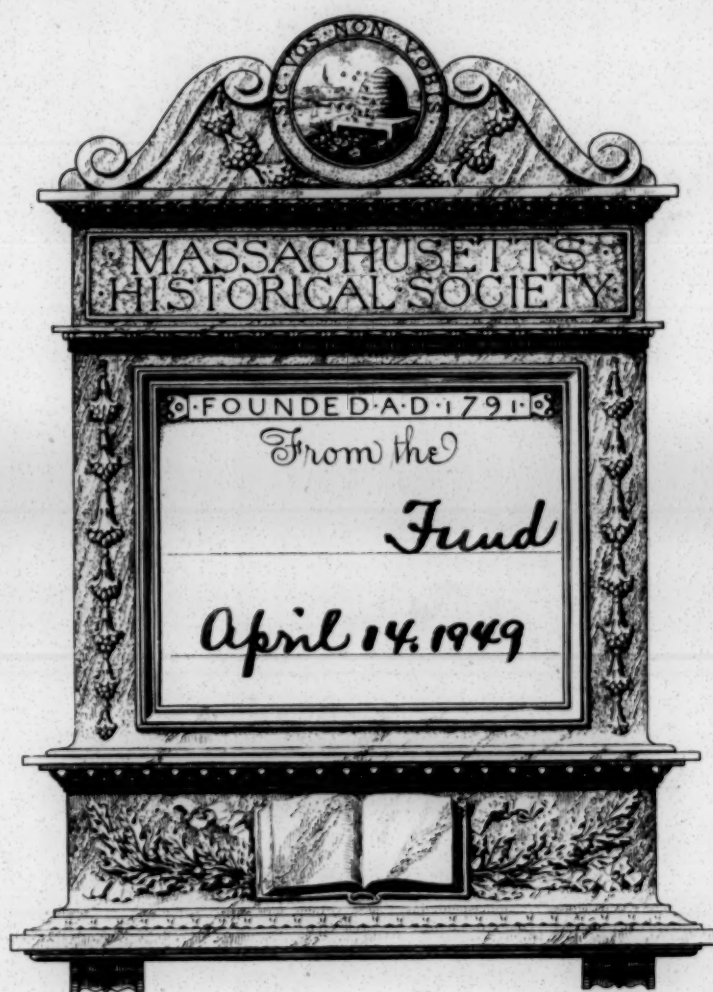 SIC · VOS · NON · VOBIS
MASSACHUSETTS
HISTORICAL SOCIETY
·FOUNDED·A·D·1791·
From the
Fund
April 14. 1949